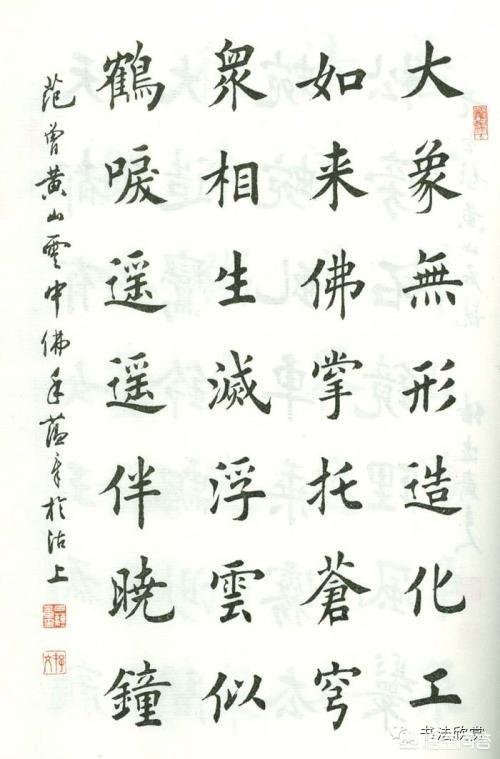 大象無形造化工
如来佛掌托蒼穹
衆相生滅浮雲似
鶴唳遥遥伴曉鐘
范曾黄山雲中佛手蕴章於沽上
书法欣赏